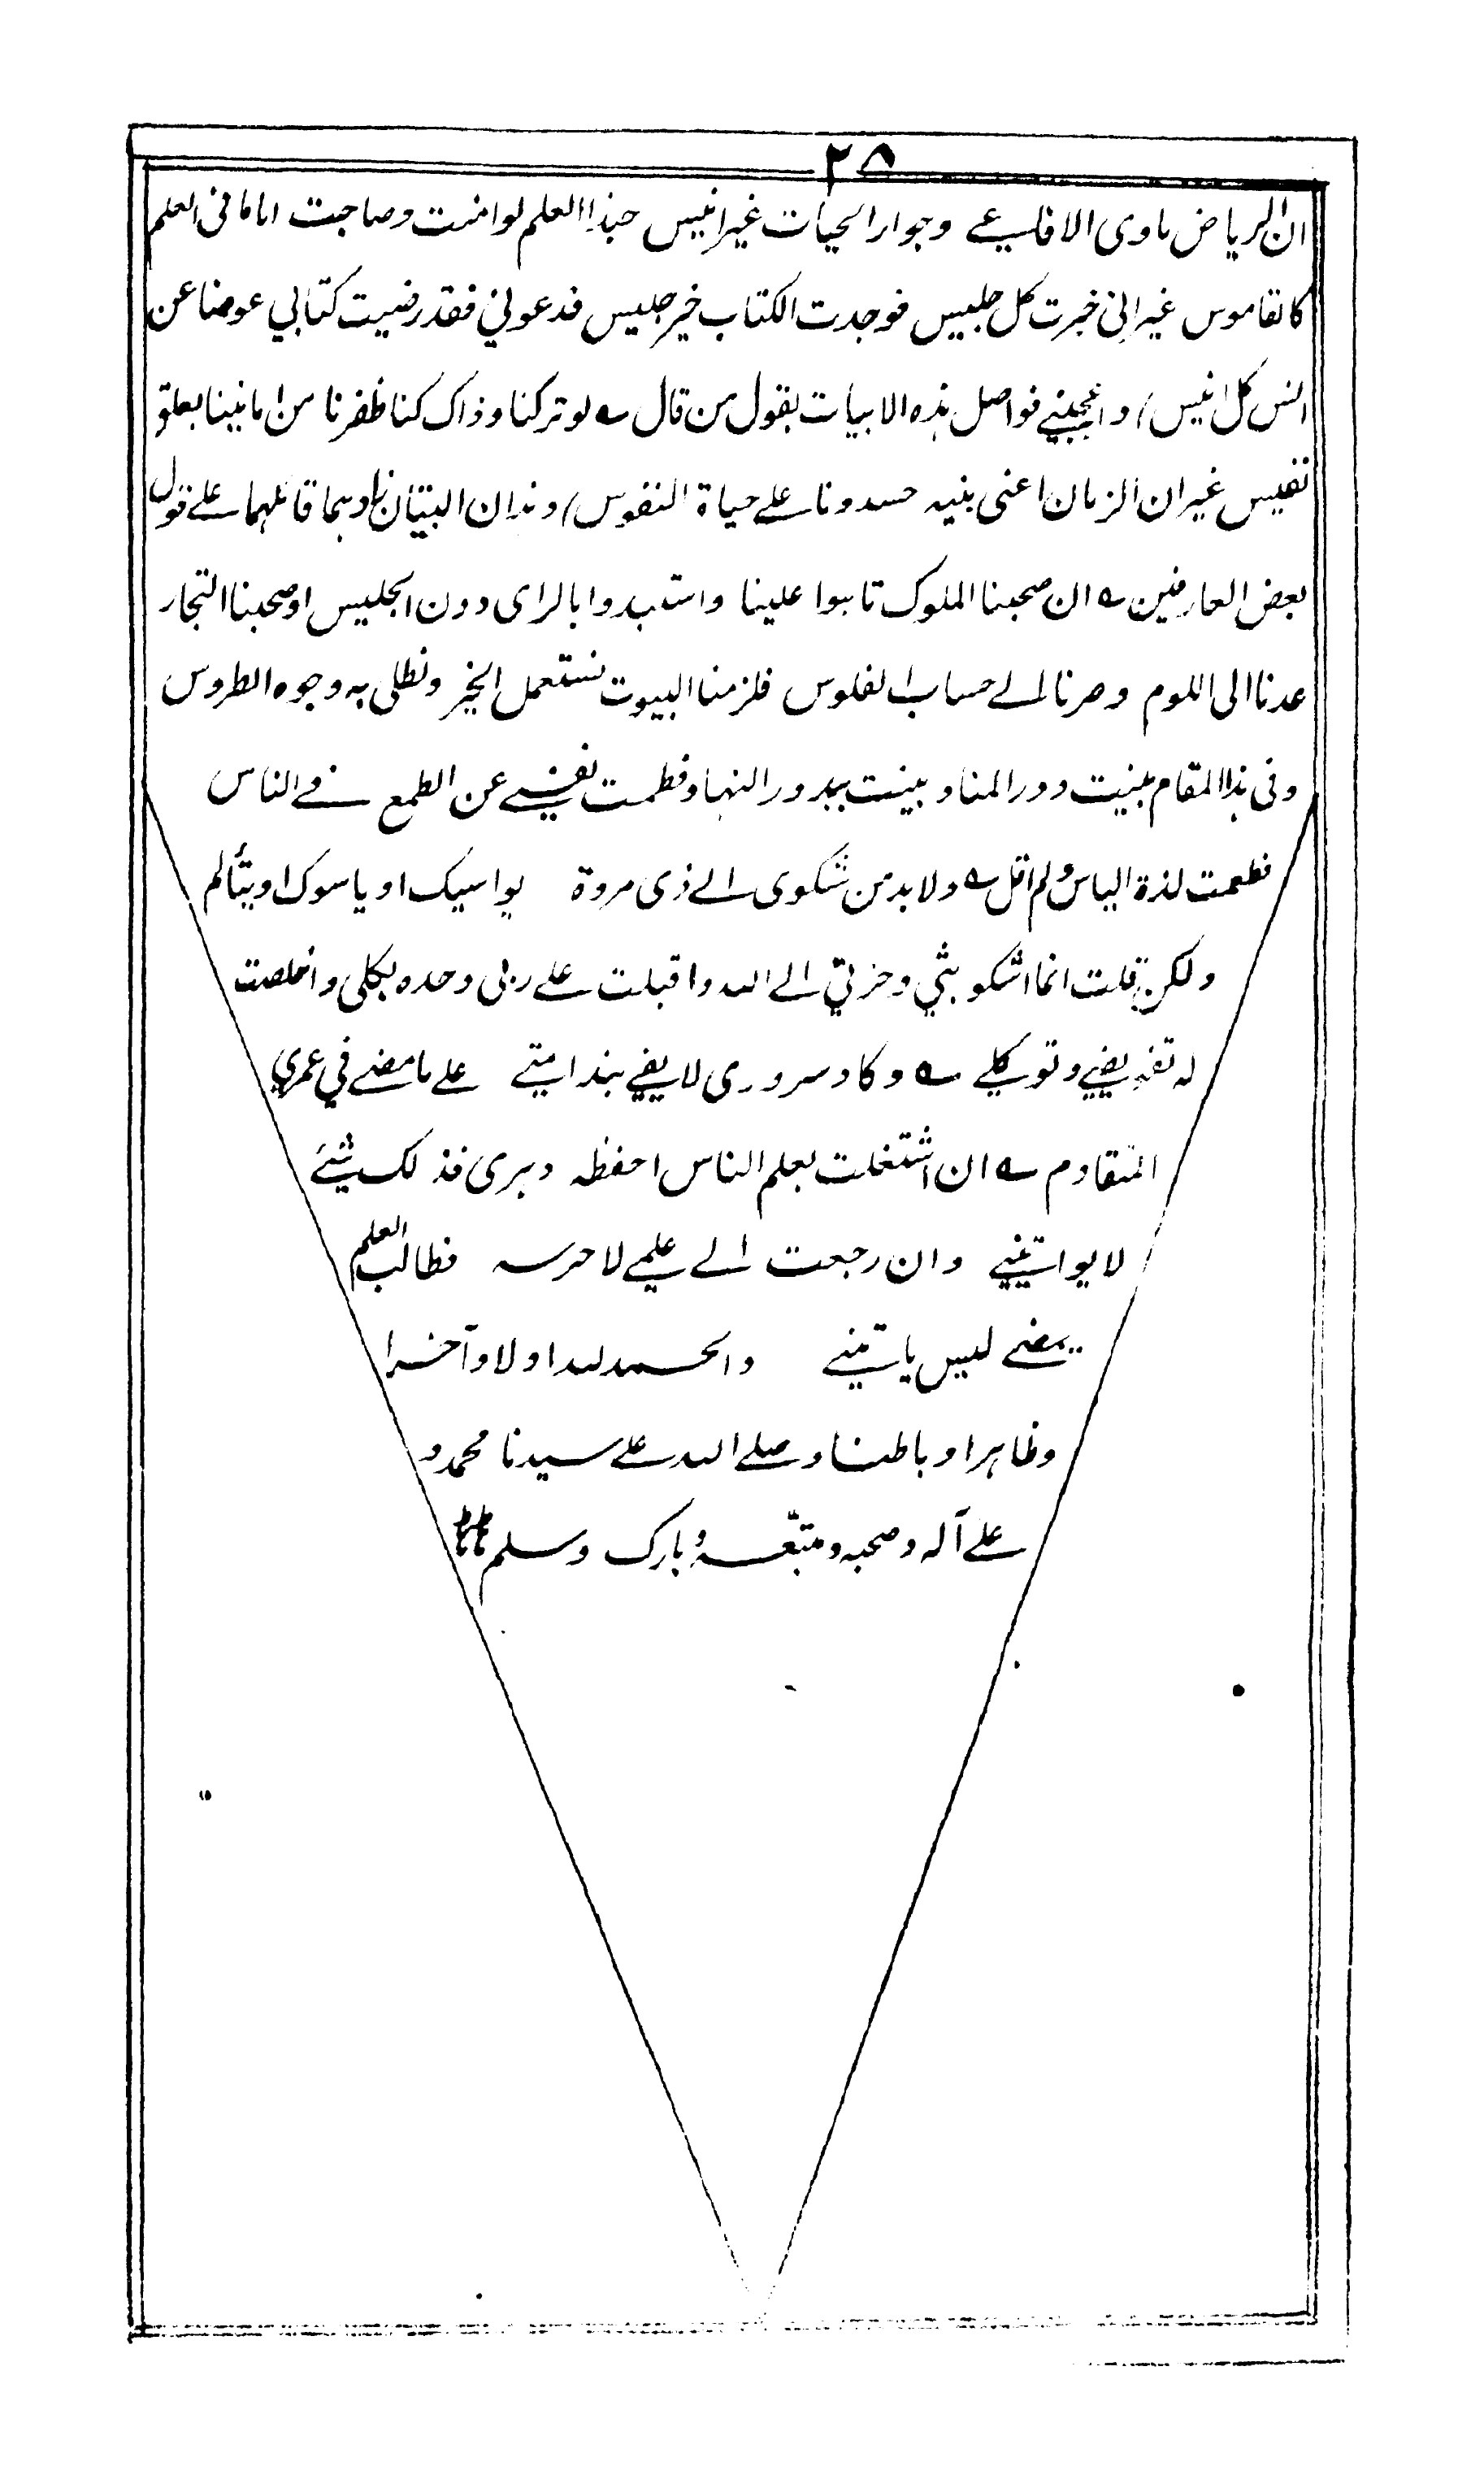 ٢٨
ان الرياض ماوى الافاعي وجوار الحيات غير انيس حبذا العلم لو امنت وصاحبت اماما في العلم
كالقاموس غير اني خبرت كل جليس فوجدت الكتاب خير جليس فدعوني فقد رضيت كتابي عوضا عن
انس كل انيس) واعجبني فواصل هذه الابيات بقول من قال ؎ لو تركنا وذاك كنا ظفرنا من امانينا بعلق
نفيس غير ان الزمان اعنى بنيه حسدونا على حياة النفوس) وهذان البيتان زادهما قائلهما على قول
بعض العارفين ؎ ان صحبنا الملوك تاهوا علينا واستبدوا بالراى دون الجليس او صحبنا التجار
عدنا الى اللوم وصرنا الى حساب الفلوس فلزمنا البيوت نستعمل الحبر ونطلى به وجوه الطروس
وفى هذا المقام بنيت دور المنا وبينت بدور النها وفطمت نفسي عن الطمع في الناس
فطعمت لذة الياس ولم اقل ؎ ولا بد من شكوى الى ذى مروة يواسيك او ياسوك او يتألم
ولكن قلت انما اشكو بثي وحزني الى الله واقبلت على ربى وحده بكلى واخلصت
له تفويضي وتوكلي ؎ وكاد سرورى لا يفي بندامتي على ما مضى في عمري
المتقادم ؎ ان اشتغلت بعلم الناس احفظه دهرى فذلك شيئ
لا يواتيني وان رجعت الى علمي لاحرسه فطالب العلم
يمضى ليس ياتيني والحمد لله اولا وآخرا
وظاهرا وباطنا وصلى الله على سيدنا محمد و
على آله وصحبه ومتبعيه وبارك وسلم